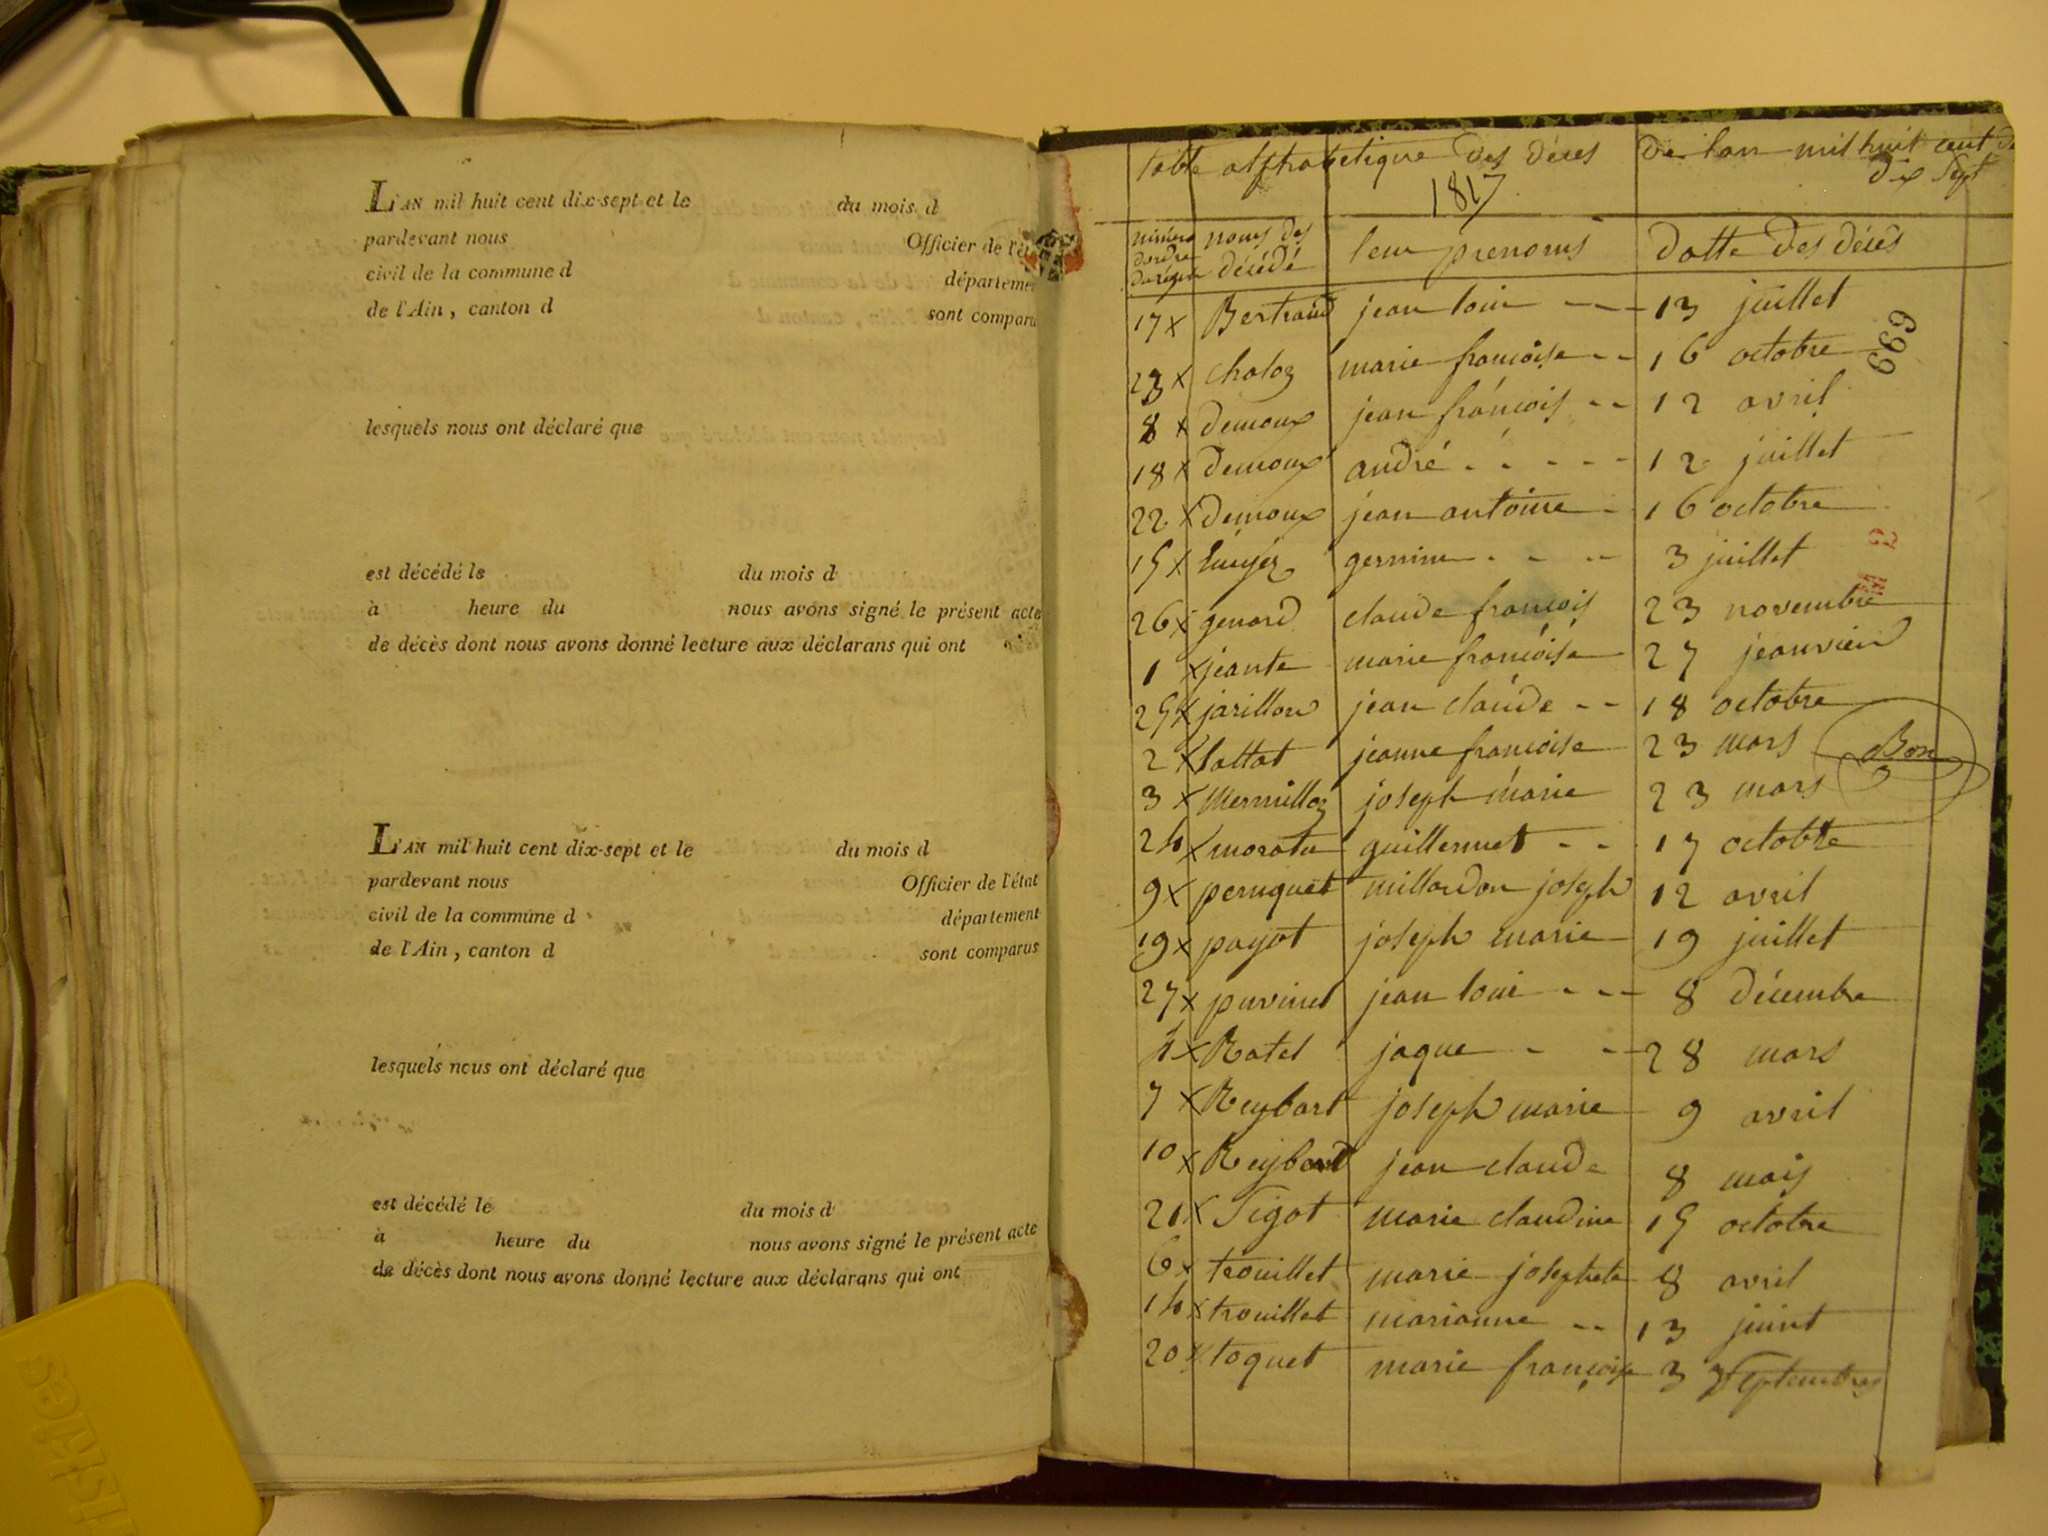 L'AN mil huit cent dix-sept et le du mois d
pardevant nous Officier de l'éta
civil de la commune d départemen
de l'Ain, canton d sont comparu
lesquels nous ont déclaré que
est décédé le du mois d
à heure du nous avons signé le présent acte
de décès dont nous avons donné lecture aux déclarans qui ont
L'AN mil huit cent dix-sept et le du mois d
pardevant nous Officier de l'état
civil de la commune d département
de l'Ain, canton d sont comparus
lesquels nous ont déclaré que
est décédé le du mois d
à heure du nous avons signé le présent acte
de décès dont nous avons donné lecture aux déclarans qui ont
table alfhabetique des déces de lan mil huit cent
dix sept
1817
numéro dordre noms des décédé leur prenoms datte des décès
17 x Bertrand jean loui 13 juillet
669
23 x chaloz marie francoise 16 octobre
8 x demoux jean francois 12 avril
18 x demoux andré 12 juillet
22 x demoux jean antoine 16 octobre
15 x germine 3 juillet
26 x genard claude francois 23 novembre
1 x jeante marie francoise 27 jeanvier
25 x jarillon jean claude 18 octobre
2 x lattat jeanne francoise 23 mars
Bon
3 x Mermilloz joseph marie 23 mars
24 x guillermet 17 octobre
9 x peruquet millardon joseph 12 avril
19 x payot joseph marie 19 juillet
27 x puvinel jean loui 8 décembre
4 x Ratel jaque 28 mars
7 x Reybart joseph marie 9 avril
10 x Reybard jean claude 8 mais
21 x Tigot marie claudine 15 octobre
6 x trouillet marie josephete 8 avril
14 x trouillet marianne 13 juint
20 x toquet marie francoise 3 septembre